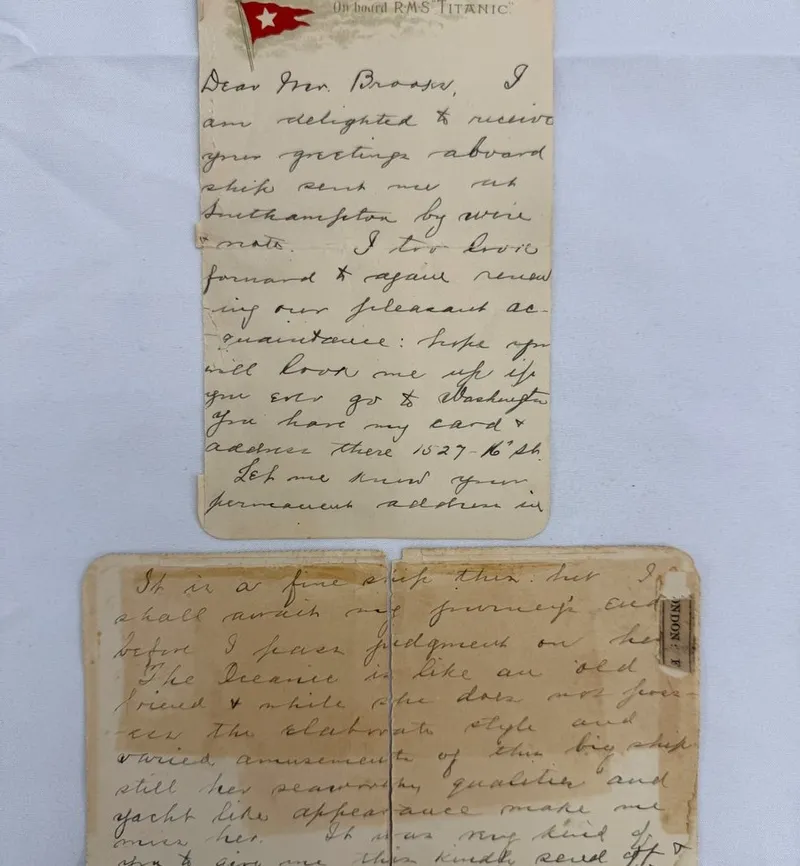 On board R.M.S "TITANIC."
Dear Mr. Brooks, I
am delighted to receive
your greetings aboard
ship sent me at
Southampton by wire
& note. I too look
forward to again renew
-ing our pleasant ac-
quaintance: hope you
will look me up if
you ever go to Washington
You have my card &
address there 1527-16" St.
Let me know your
permanent address in
It is a fine ship this but I
shall await my journeys end
before I pass judgment on her
The Oceanic is like an old
friend & while she does not poss-
-ess the elaborate style and
varied amusements of this big ship
still her seaworthy qualities and
yacht like appearance make me
miss her. It was very kind of
you to give me this kindly send off &
ONDON